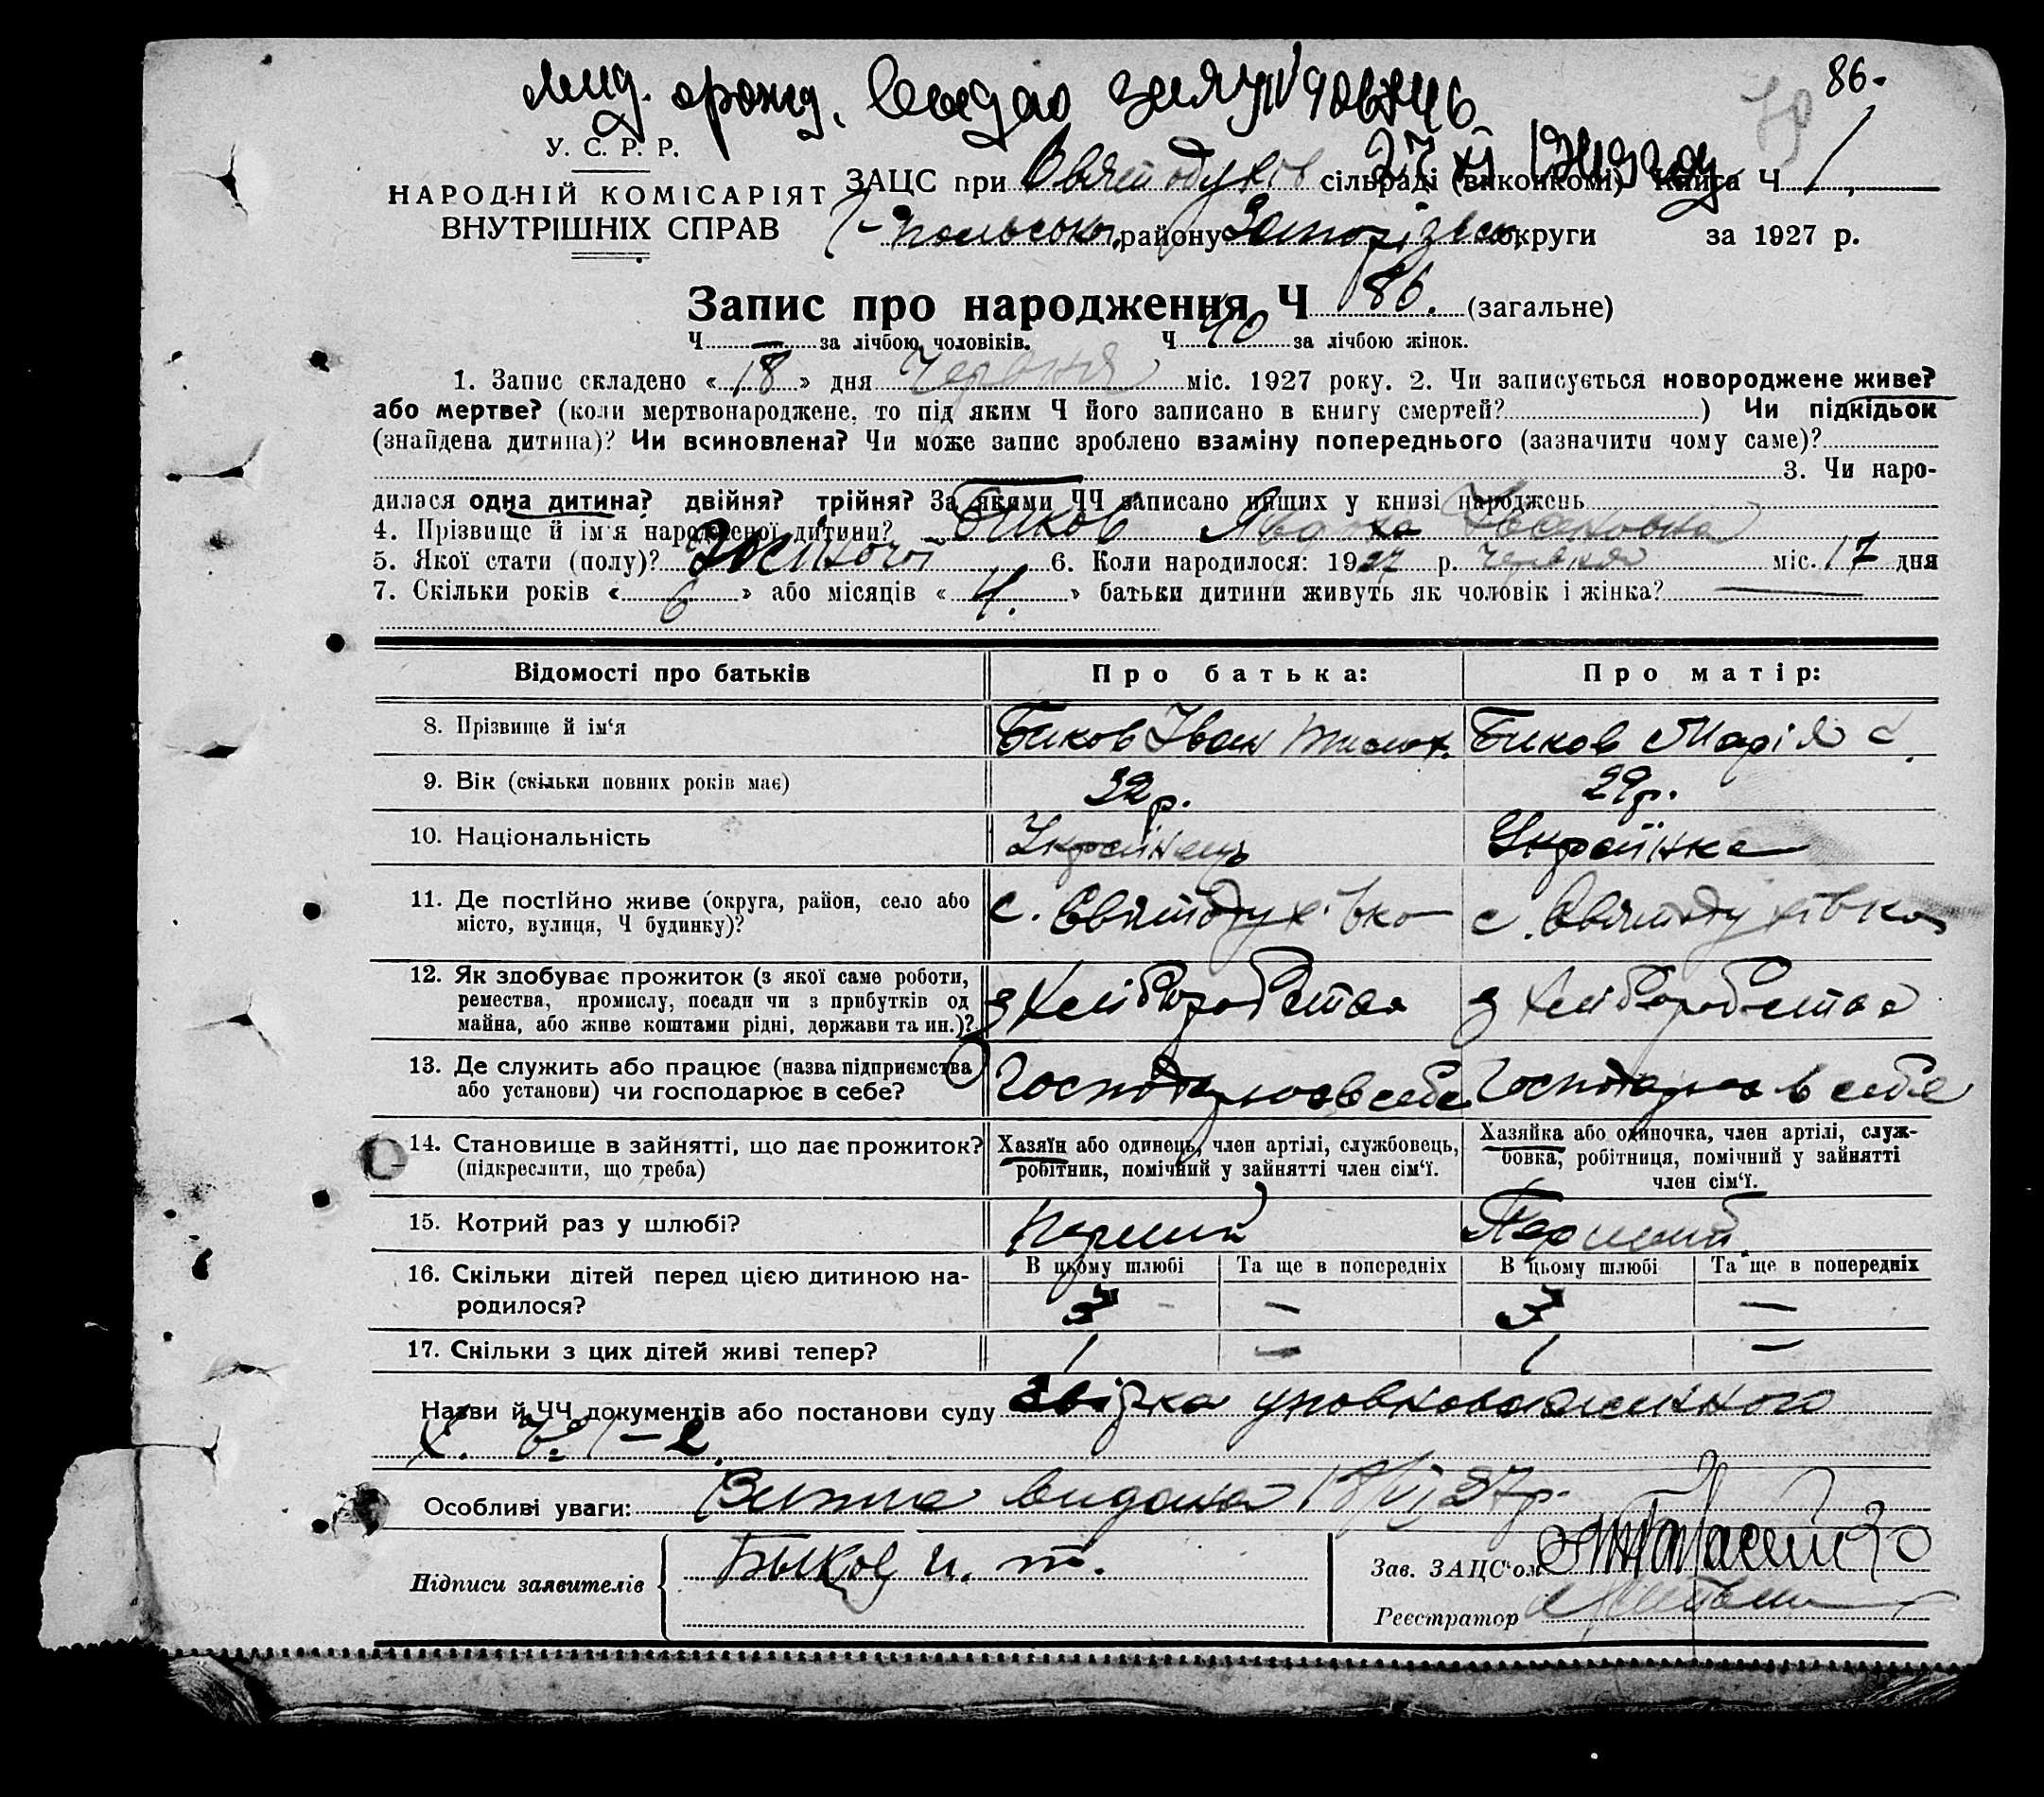 86.
У. С. Р. Р.
НАРОДНІЙ КОМІСАРІЯТ
ВНУТРІШНІХ СПРАВ
ЗАЦС при Святодухів сільраді (виконкомі) Книга Ч 1.
району Запорізьк. округи за 1927 р.
Запис про народження Ч 86. (загальне)
Ч — за лічбою чоловіків. Ч 40 за лічбою жінок.
1. Запис складено « 18 » дня Червня міс. 1927 року. 2. Чи записується новороджене живе?
або мертве? (коли мертвонароджене, то під яким Ч його записано в книгу смертей? ) Чи підкідьок
(знайдена дитина)? Чи всиновлена? Чи може запис зроблено взаміну попереднього (зазначити чому саме)?
3. Чи наро-
дилася одна дитина? двійня? трійня? За якими ЧЧ записано инших у книзі народжень
4. Прізвище й ім'я народженої дитини? Биков Явдоха Івановна
5. Якої стати (полу)? Жіночої 6. Коли народилося: 1927 р. червня міс. 17 дня
7. Скільки років « 6 » або місяців « 4. » батьки дитини живуть як чоловік і жінка? —
Відомості про батьків Про батька: Про матір:
8. Прізвище й ім'я Биков Іван Тимох. Биков Марія С.
9. Вік (скільки повних років має) 32 р. 29 р.
10. Національність Українець Українка
11. Де постійно живе (округа, район, село або
місто, вулиця, Ч будинку)? с. Святодухівка с. Святодухівка
12. Як здобуває прожиток (з якої саме роботи,
ремества, промислу, посади чи з прибутків од
майна, або живе коштами рідні, держави та ин.)? з хліборобства з хліборобства
13. Де служить або працює (назва підприємства
або установи) чи господарює в себе? Господарює в себе Господарює в себе
14. Становище в зайнятті, що дає прожиток?
(підкреслити, що треба)
Хазяїн або одинець, член артілі, службовець,
робітник, помічний у зайнятті член сім'ї.
Хазяйка або одиночка, член артілі, служ-
бовка, робітниця, помічний у зайнятті
член сім'ї.
15. Котрий раз у шлюбі? Перший Перший
16. Скільки дітей перед цією дитиною на-
родилося?
В цьому шлюбі Та ще в попередніх В цьому шлюбі Та ще в попередніх
3 — 3 —
17. Скільки з цих дітей живі тепер? 1 — 1 —
Назви й ЧЧ документів або постанови суду Звірка уповноваженного
Особливі уваги: Випис видана 18/VI 27 р.
Підписи заявителів Быков И. Т.
Зав. ЗАЦС'ом
Реєстратор